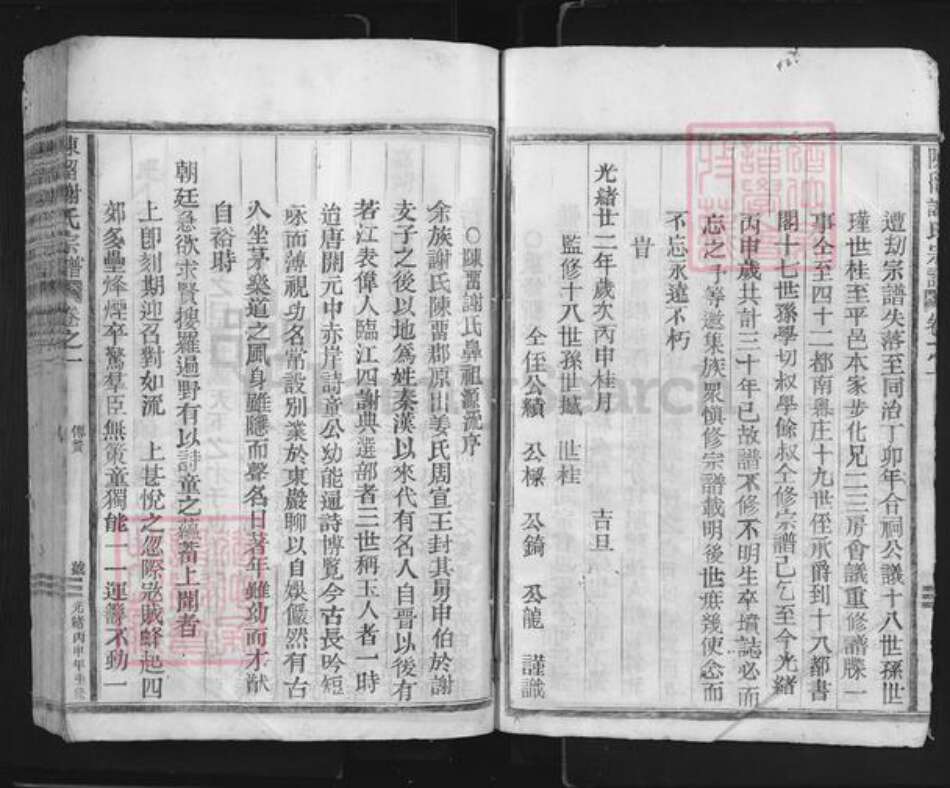 遭刧宗譜失落至同治丁卯年合祠公議十八世孫世
瑾世桂至平邑本家步化兄二三房會議重修譜牒一
事仝至四十二都南粵庄十九世侄承爵到十八都書
閣十七世孫學切叔學餘叔仝修宗譜己乞至今光緒
丙申歲共計三十年已故譜不修不明生卒墳誌必而
忘之予等邀集族眾慎修宗譜載明後世庶幾使念而
不忘永遠不朽
旹
光緒廿二年歲次丙申桂月 吉旦
監修十八世孫世瑊 世桂
仝侄公績 公樑 公錡 公龍 謹識
陳畱謝氏宗譜 卷之一
傳贊
號
光緒丙申年重修
○陳畱謝氏鼻祖源流序
余族謝氏陳畱郡原出姜氏周宣王封其舅申伯於謝
支子之後以地為姓秦漢以來代有名人自晉以後有
若江表偉人臨江四謝典選部者三世稱玉人者一時
迨唐開元中赤岸詩童公幼能通詩博覽今古長吟短
咏而薄視功名常設別業於東嚴聊以自娛儼然有古
人坐茅樂道之風身雖隱而聲名日著年雖幼而才猷
自裕時
朝廷急欲求賢搜羅遍野有以詩童之蘊蓄上聞者
上卽刻期迎召對如流 上甚悅之忽際寇賊蜂起四
郊多壘烽煙卒驚羣臣無策童獨能一一運籌不動一